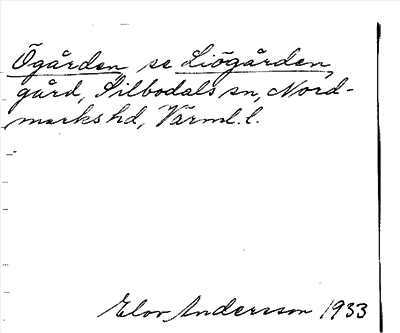 Ögården se Liögården,
gård, Silbodals sn, Nord-
marks hd, Värml. l.
Elov Andersson 1933